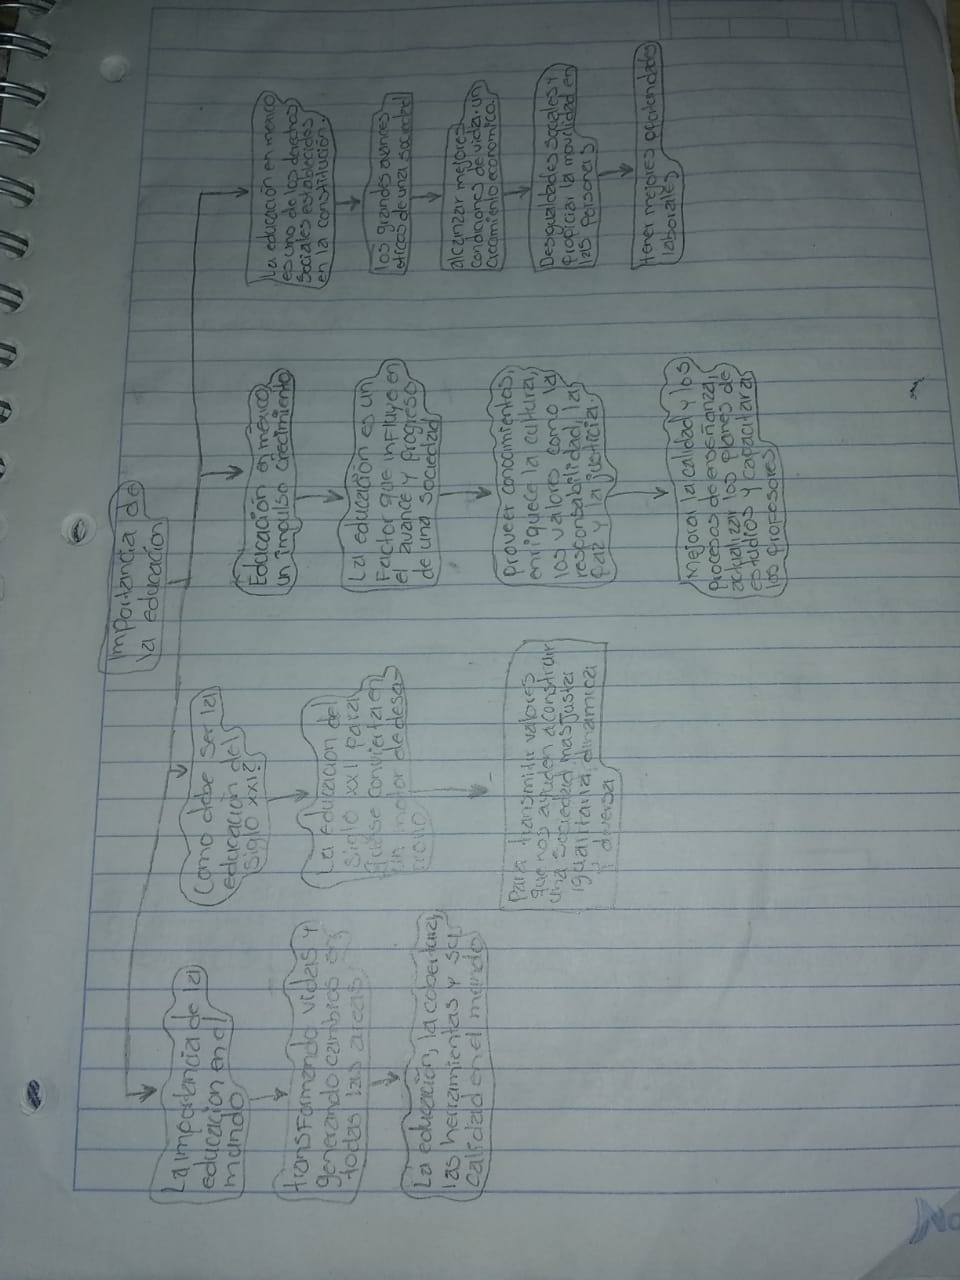 Importancia de
la educación
La importancia de la
educación en el
mundo
transformando vidas y
generando cambios en
todas las areas
La educación, la cobertura,
las herramientas y su
calidad en el mundo
Como debe ser la
educación del
siglo xxi?
La educacion del
siglo xxi para
que se convierta en
un motor de desa
rrollo
Para transmitir valores
que nos ayuden a construir
una sociedad mas justa
igualitaria, dinamica
y diversa
Educación en mexico,
un impulso crecimiento
La educación es un
Factor que influye en
el avance y progreso
de una sociedad
Proveer conocimientos,
enriquece la cultura,
los valores como la
responsabilidad, la
Paz y la justicia.
Mejorar la calidad y los
Procesos de enseñanza,
actualizar los planes de
estudios y capacitar a
los profesores
La educación en mexico
es uno de los derechos
Sociales establecidos
en la constitución.
los grandes avances
eticos de una sociedad
alcanzar mejores
condiciones de vida. un
crecimiento economico.
Desigualdades sociales y
Propiciar la movilidad en
las Personas
tener mejores oportunidades
laborales
No